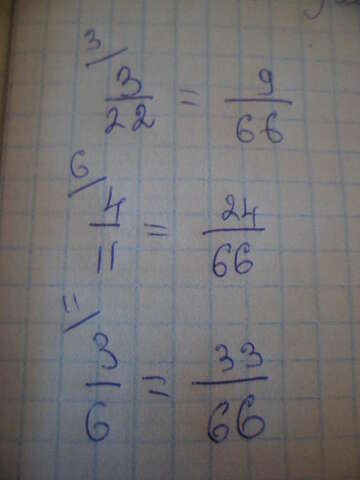 3/ 3/22 = 9/66
6/ 4/11 = 24/66
11/ 3/6 = 33/66